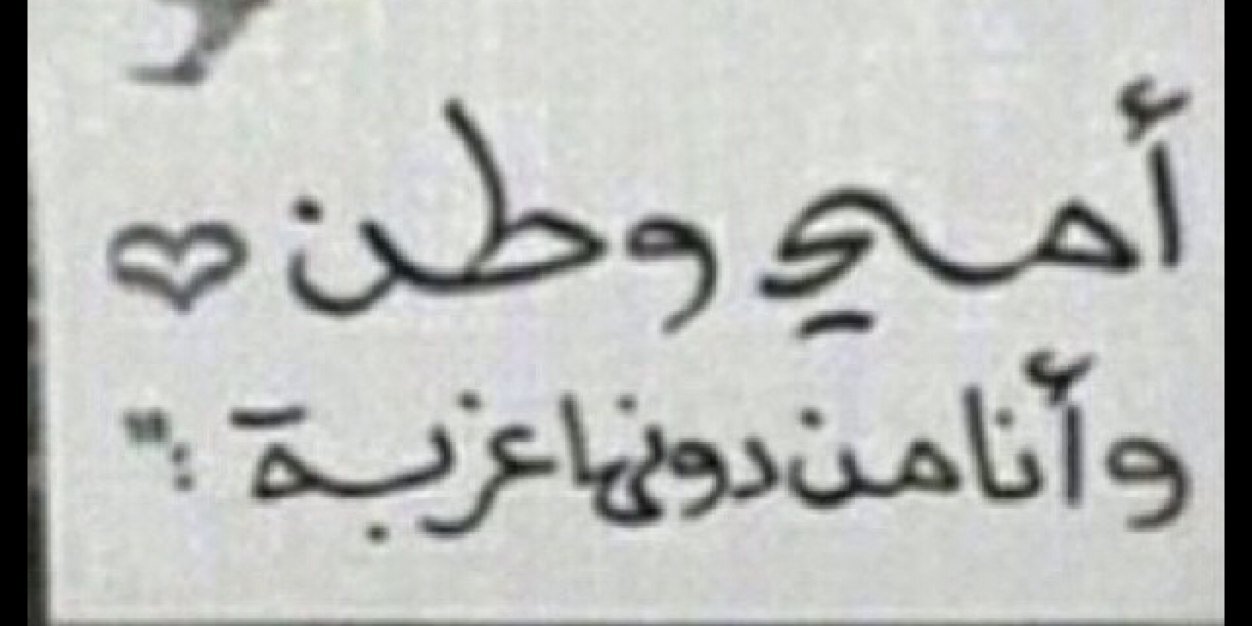 أمي وطن ♡
وأنا من دونها غربة :"